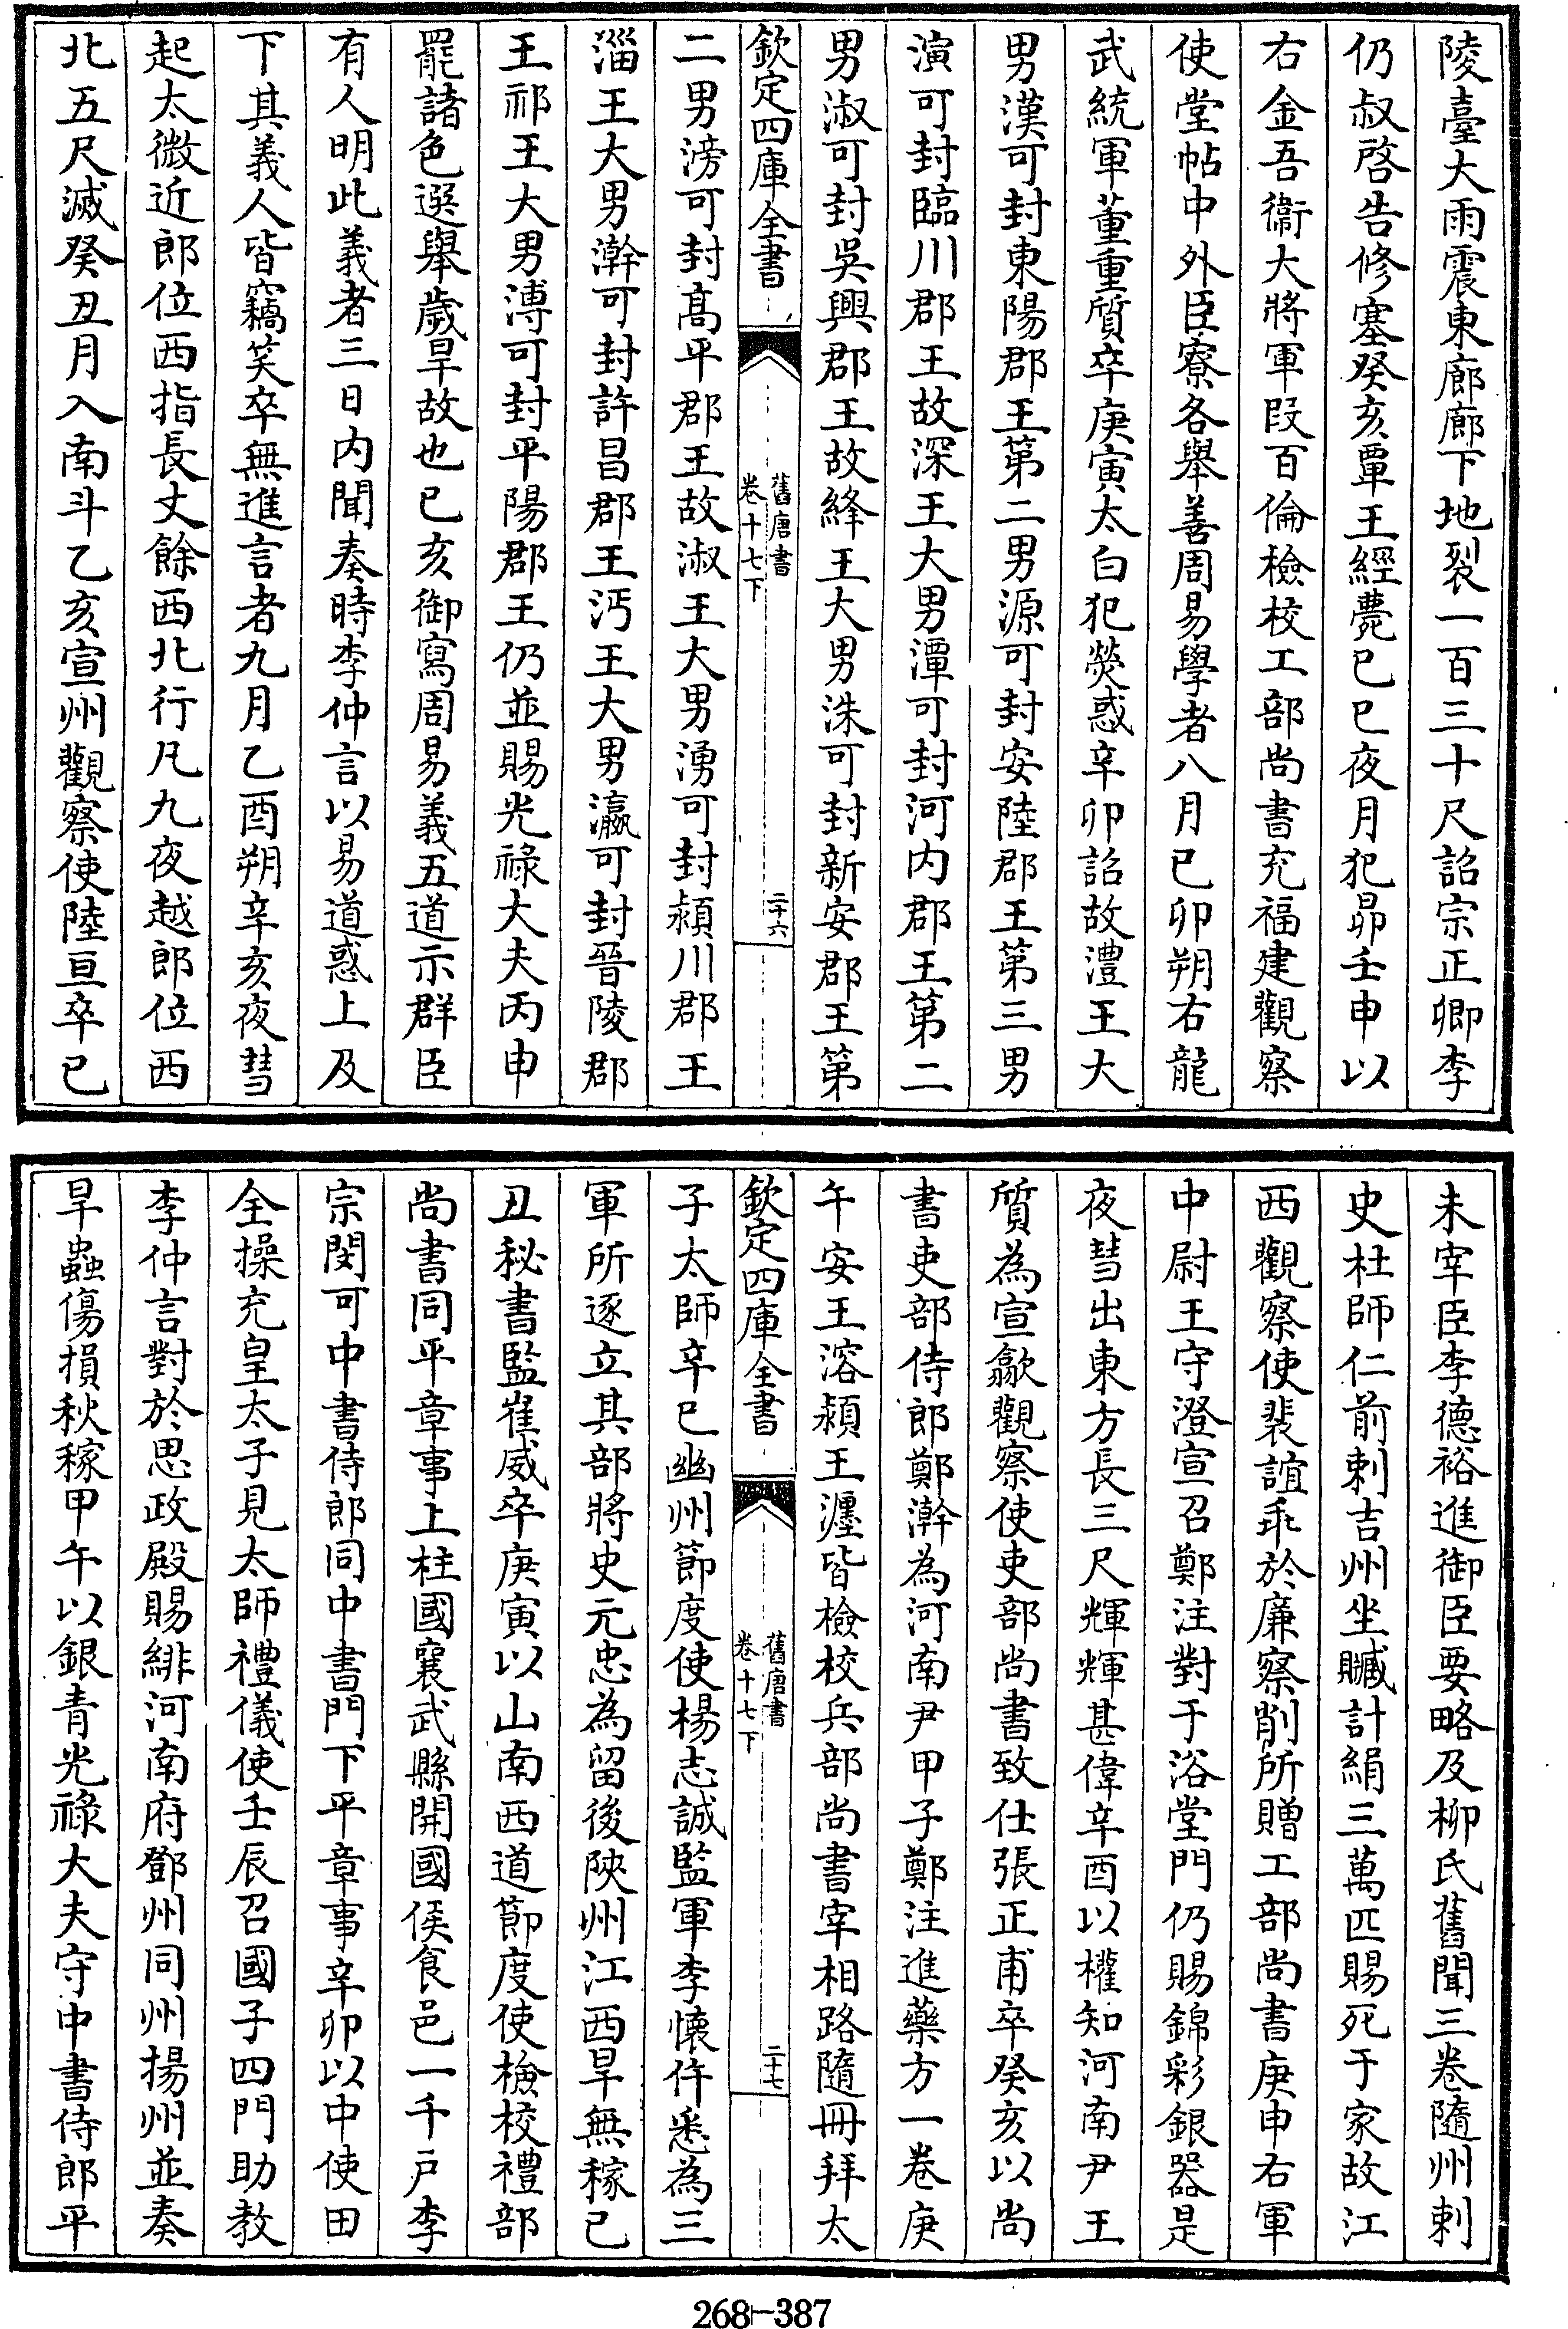 陵臺大雨震東廊廊下地裂一百三十尺詔宗正卿李
仍叔啓告修塞癸亥覃王經薨己巳夜月犯昴壬申以
右金吾衞大將軍段百倫檢校工部尚書充福建觀察
使堂帖中外臣寮各舉善周易學者八月己卯朔右龍
武統軍董重質卒庚寅太白犯熒惑辛卯詔故澧王大
男漢可封東陽郡王第二男源可封安陸郡王第三男
演可封臨川郡王故深王大男潭可封河内郡王第二
男淑可封吳興郡王故絳王大男洙可封新安郡王第
欽定四庫全書
舊唐書
卷十七下
二十六
二男滂可封髙平郡王故淑王大男湧可封潁川郡王
淄王大男澣可封許昌郡王沔王大男瀛可封晉陵郡
王祁王大男溥可封平陽郡王仍並賜光祿大夫丙申
罷諸色選舉歲旱故也已亥御寫周易義五道示群臣
有人明此義者三日内聞奏時李仲言以易道惑上及
下其義人皆竊笑卒無進言者九月乙酉朔辛亥夜彗
起太微近郎位西指長丈餘西北行凡九夜越郎位西
北五尺滅癸丑月入南斗乙亥宣州觀察使陸亘卒已
未宰臣李德裕進御臣要略及柳氏舊聞三卷隨州刺
史杜師仁前刺吉州坐贓計絹三萬匹賜死于家故江
西觀察使裴誼乖於廉察削所贈工部尚書庚申右軍
中尉王守澄宣召鄭注對于浴堂門仍賜錦彩銀器是
夜彗出東方長三尺輝輝甚偉辛酉以權知河南尹王
質為宣歙觀察使吏部尚書致仕張正甫卒癸亥以尚
書吏部侍郎鄭澣為河南尹甲子鄭注進藥方一卷庚
午安王溶潁王瀍皆檢校兵部尚書宰相路隨冊拜太
欽定四庫全書
舊唐書
卷十七下
二十七
子太師辛巳幽州節度使楊志誠監軍李懷仵悉為三
軍所逐立其部將史元忠為留後陝州江西旱無稼己
丑秘書監崔威卒庚寅以山南西道節度使檢校禮部
尚書同平章事上柱國襄武縣開國侯食邑一千户李
宗閔可中書侍郎同中書門下平章事辛卯以中使田
全操充皇太子見太師禮儀使壬辰召國子四門助教
李仲言對於思政殿賜緋河南府鄧州同州揚州並奏
旱蟲傷損秋稼甲午以銀青光祿大夫守中書侍郎平
268-387